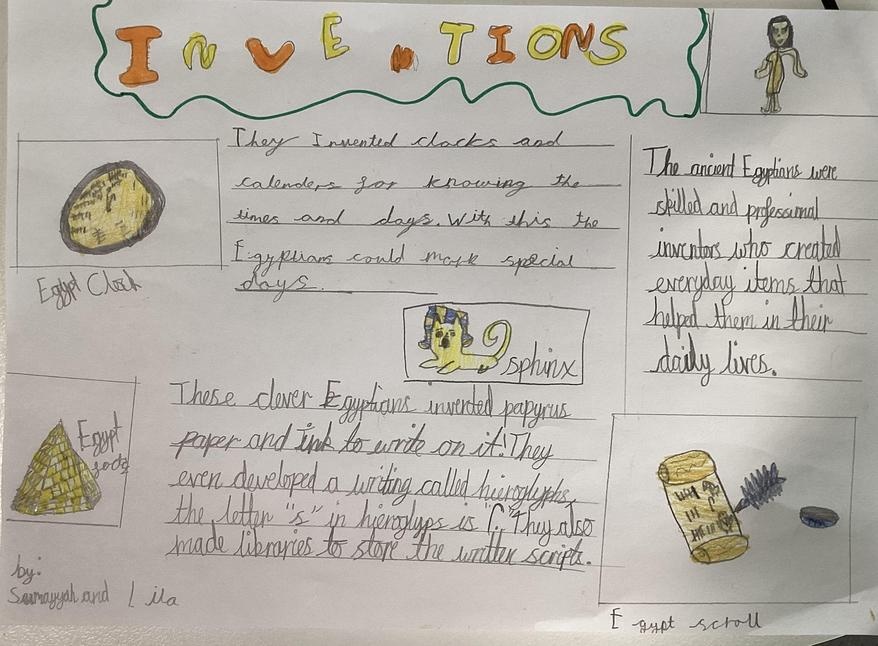 INVENTIONS
They Invented clocks and
calenders for knowing the
times and days. With this the
Egyptians could mark special
days.
Egypt Clock
The ancient Egyptians were
skilled and professional
inventors who created
everyday items that
helped them in their
daily lives.
sphinx
These clever Egyptians invented papyrus
paper and Ink to write on it! They
even developed a writing called hieroglyphs,
the letter "s" in hieroglyps is "ʃ". They also
made libraries to store the written scripts.
Egypt
by:
Sumayyah and Lila
Egypt scroll